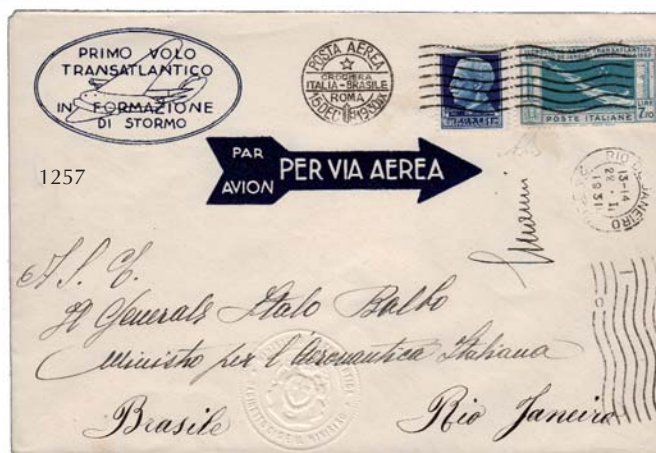 PRIMO VOLO
TRANSATLANTICO
IN FORMAZIONE
DI STORMO
POSTA AEREA
CROCIERA
ITALIA-BRASILE
ROMA
15 DEC 1930
LIRE
7,70
POSTE ITALIANE
PAR
AVION
PER VIA AEREA
1257
RIO DE JANEIRO
13-14
22 . I
1931
A S. E.
Il Generale Italo Balbo
Ministro per l'Aeronautica Italiana
Brasile Rio Janeiro